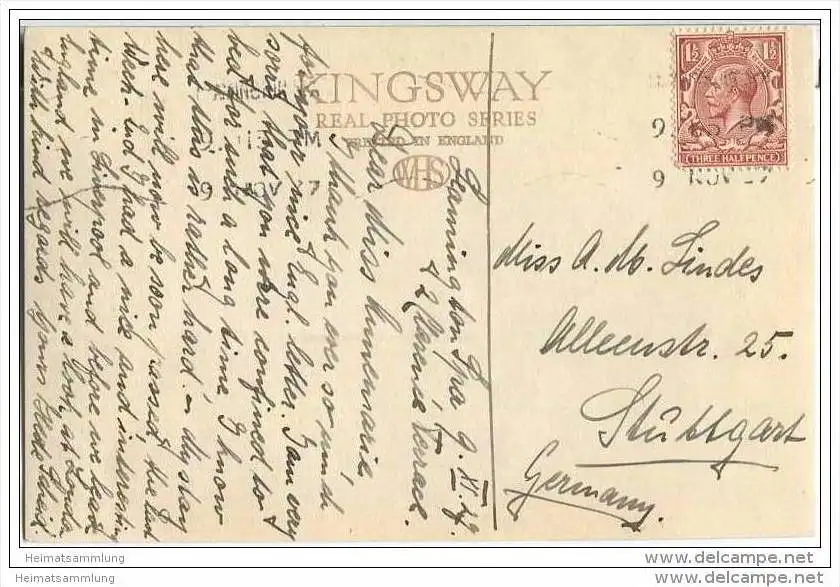 KINGSWAY
REAL PHOTO SERIES
PRINTED IN ENGLAND
WHS
1½ 1½
(THREE HALFPENCE)
9 NOV 27
9 NOV 27
Leamington Spa, 9. XI. 27.
Clarence Terrace.
Dear Miss Annemarie,
I thank you ever so much
for your nice Engl. letter. I am very
sorry that you were confined to
bed for such a long time. I know
that this is rather hard. – My stay
here will now be soon passed, the last
Week-End I had a nice and interesting
time in Liverpool and before we leave
England we will have a look at London
With kind regards Yours
Miss A. M. Lindes
Alleenstr. 25.
Stuttgart
Germany.
Heimatsammlung
Heimatsammlung
delcampe.net